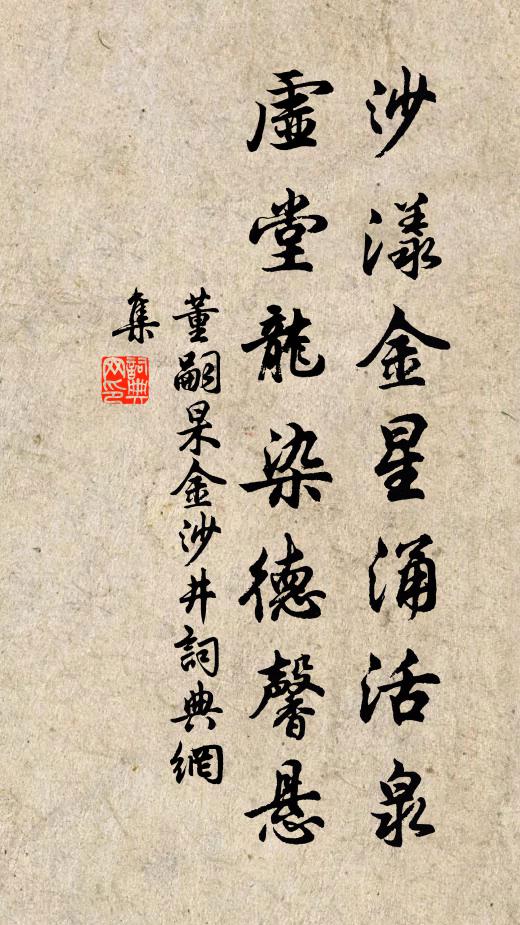 沙漾金星涌活泉
虛堂龍染德馨悬
董嗣杲金沙井詞典網
集
詞典网印